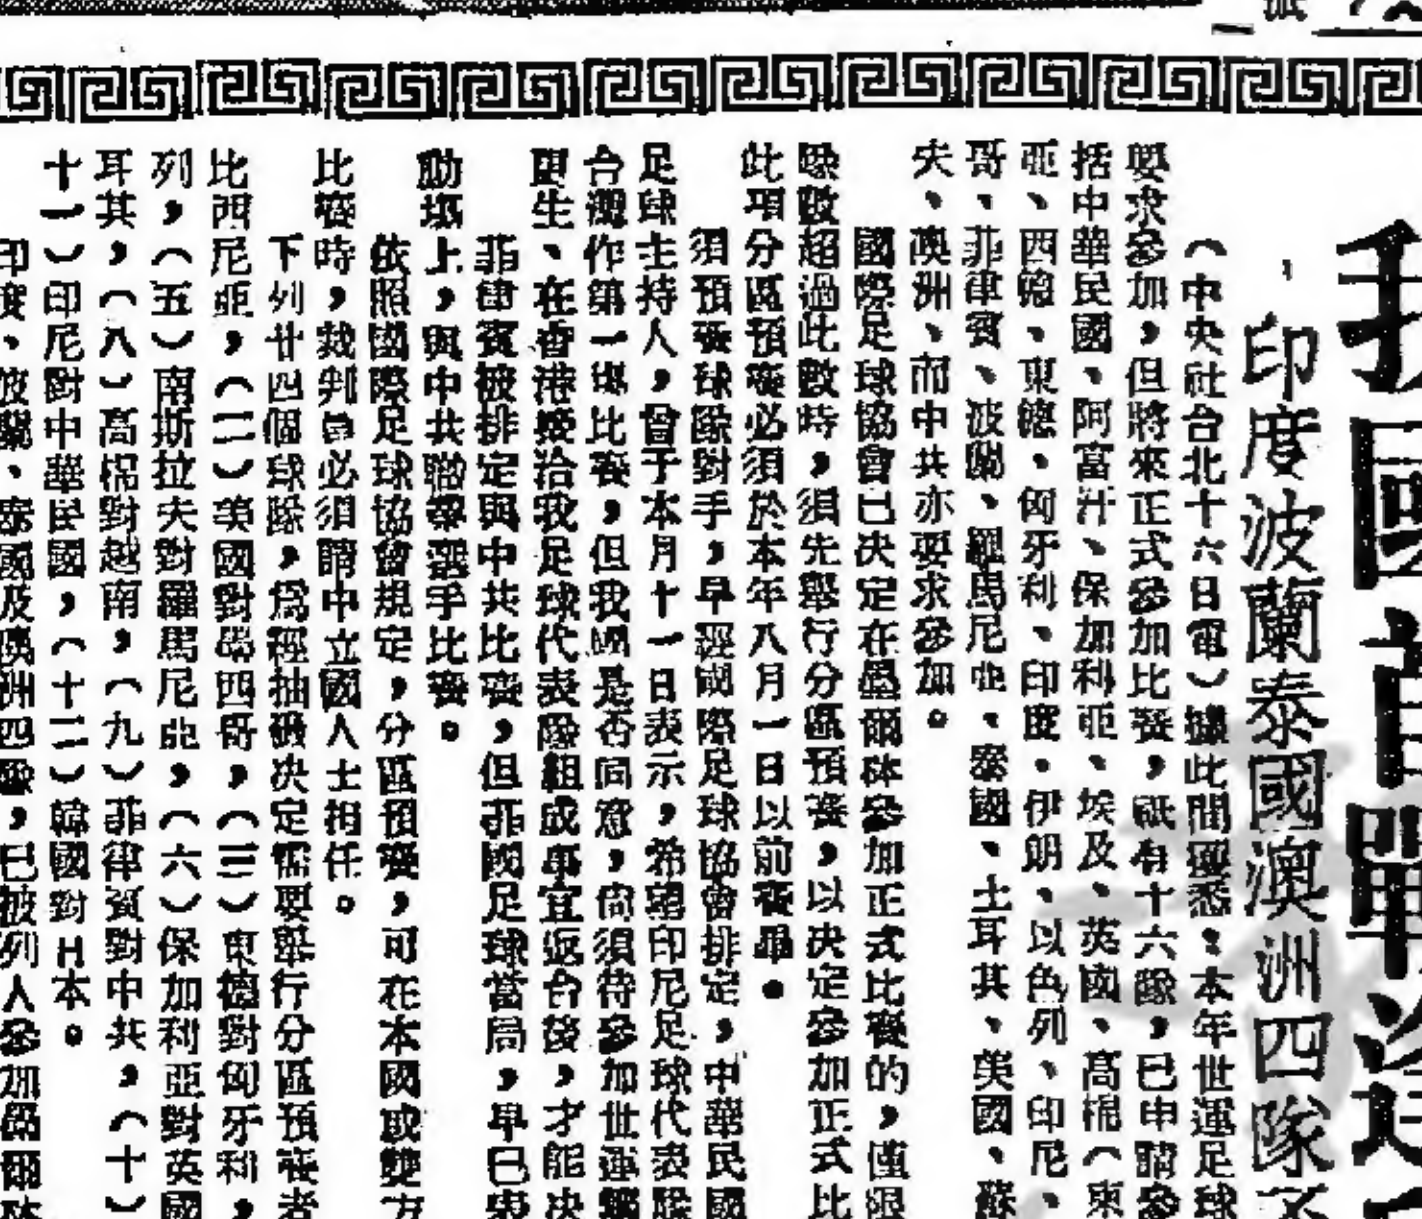 我國占戰
印度波蘭泰國澳洲四隊
（中央社台北十六日電）據此間獲悉：本年世運足球
要求參加，但將來正式參加比賽，祇有十六隊，已申請參
括中華民國、阿富汗、保加利亞、埃及、英國、高棉（東
亞、西德、東德、匈牙利、印度、伊朗、以色列、印尼、
哥、菲律賓、波蘭、羅馬尼亞、泰國、土耳其、美國、蘇
夫、澳洲、而中共亦要求參加。
國際足球協會已決定在墨爾砵參加正式比賽的，僅限
隊數超過此數時，須先舉行分區預賽，以決定參加正式比
此項分區預賽必須於本年八月一日以前賽畢。
須預賽球隊對手，早經國際足球協會排定，中華民國
足球主持人，曾于本月十一日表示，希望印尼足球代表隊
台灣作第一場比賽，但我國是否同意，尚須待參加世運
生、在香港接洽我足球代表隊組成事宜返台後，才能決
菲律賓被排定與中共比賽，但菲國足球當局，早已表
動場上，與中共職業選手比賽。
依照國際足球協會規定，分區預賽，可在本國或雙方
比賽時，裁判員必須請中立國人士担任。
下列廿四個球隊，爲經抽籤決定需要舉行分區預賽者
比西尼亞，（二）美國對墨西哥，（三）東德對匈牙利，
列，（五）南斯拉夫對羅馬尼亞，（六）保加利亞對英國
耳其，（八）高棉對越南，（九）菲律賓對中共，（十）
十一）印尼對中華民國，（十二）韓國對日本。
印度、波蘭、泰國及澳洲四隊，已被列入參加墨爾砵